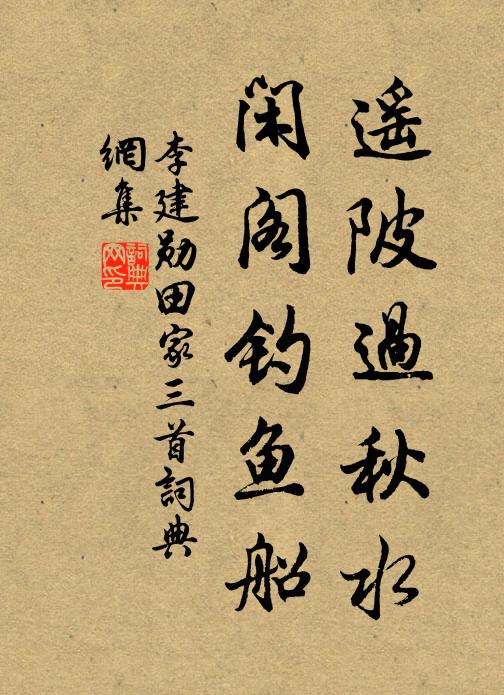 遥陂過秋水
闲阁钓鱼船
李建勋田家三首詞典
網集
詞典
网印